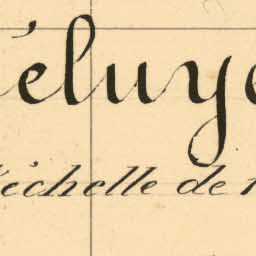 éluye
l'échelle de 1